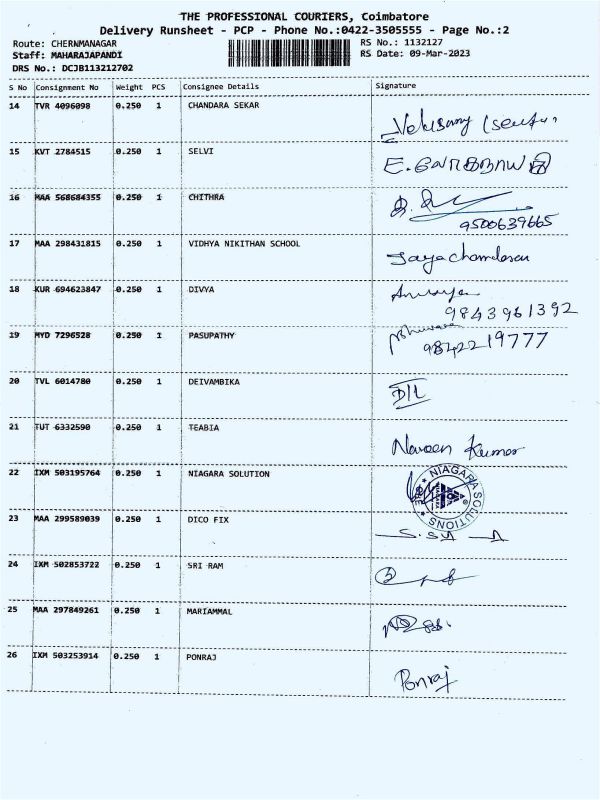 THE PROFESSIONAL COURIERS, Coimbatore
Delivery Runsheet - PCP - Phone No.:0422-3505555 - Page No.:2
Route: CHERNMANAGAR RS No.: 1132127
Staff: MAHARAJAPANDI RS Date: 09-Mar-2023
DRS No.: DCJB113212702
S No Consignment No Weight PCS Consignee Details Signature
14 TVR 4096098 0.250 1 CHANDARA SEKAR
15 KVT 2784515 0.250 1 SELVI
16 MAA 568684355 0.250 1 CHITHRA
9500639665
17 MAA 298431815 0.250 1 VIDHYA NIKITHAN SCHOOL Jayachandaran
18 KUR 694623847 0.250 1 DIVYA
9843961392
19 MYD 7296528 0.250 1 PASUPATHY
9842219777
20 TVL 6014780 0.250 1 DEIVAMBIKA
21 TUT 6332590 0.250 1 TEABIA Naveen Kumar
22 IXM 503195764 0.250 1 NIAGARA SOLUTION NIAGARA SOLUTIONS
23 MAA 299589039 0.250 1 DICO FIX
24 IXM 502853722 0.250 1 SRI RAM
25 MAA 297849261 0.250 1 MARIAMMAL
26 IXM 503253914 0.250 1 PONRAJ Ponraj